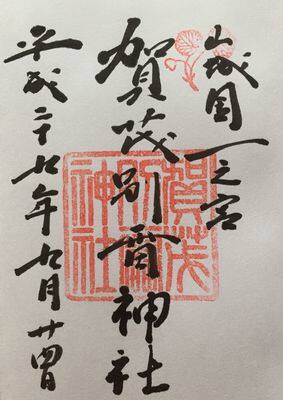 山城国一之宮
賀茂別雷神社
平成二十九年九月廿四日
賀茂別雷神社